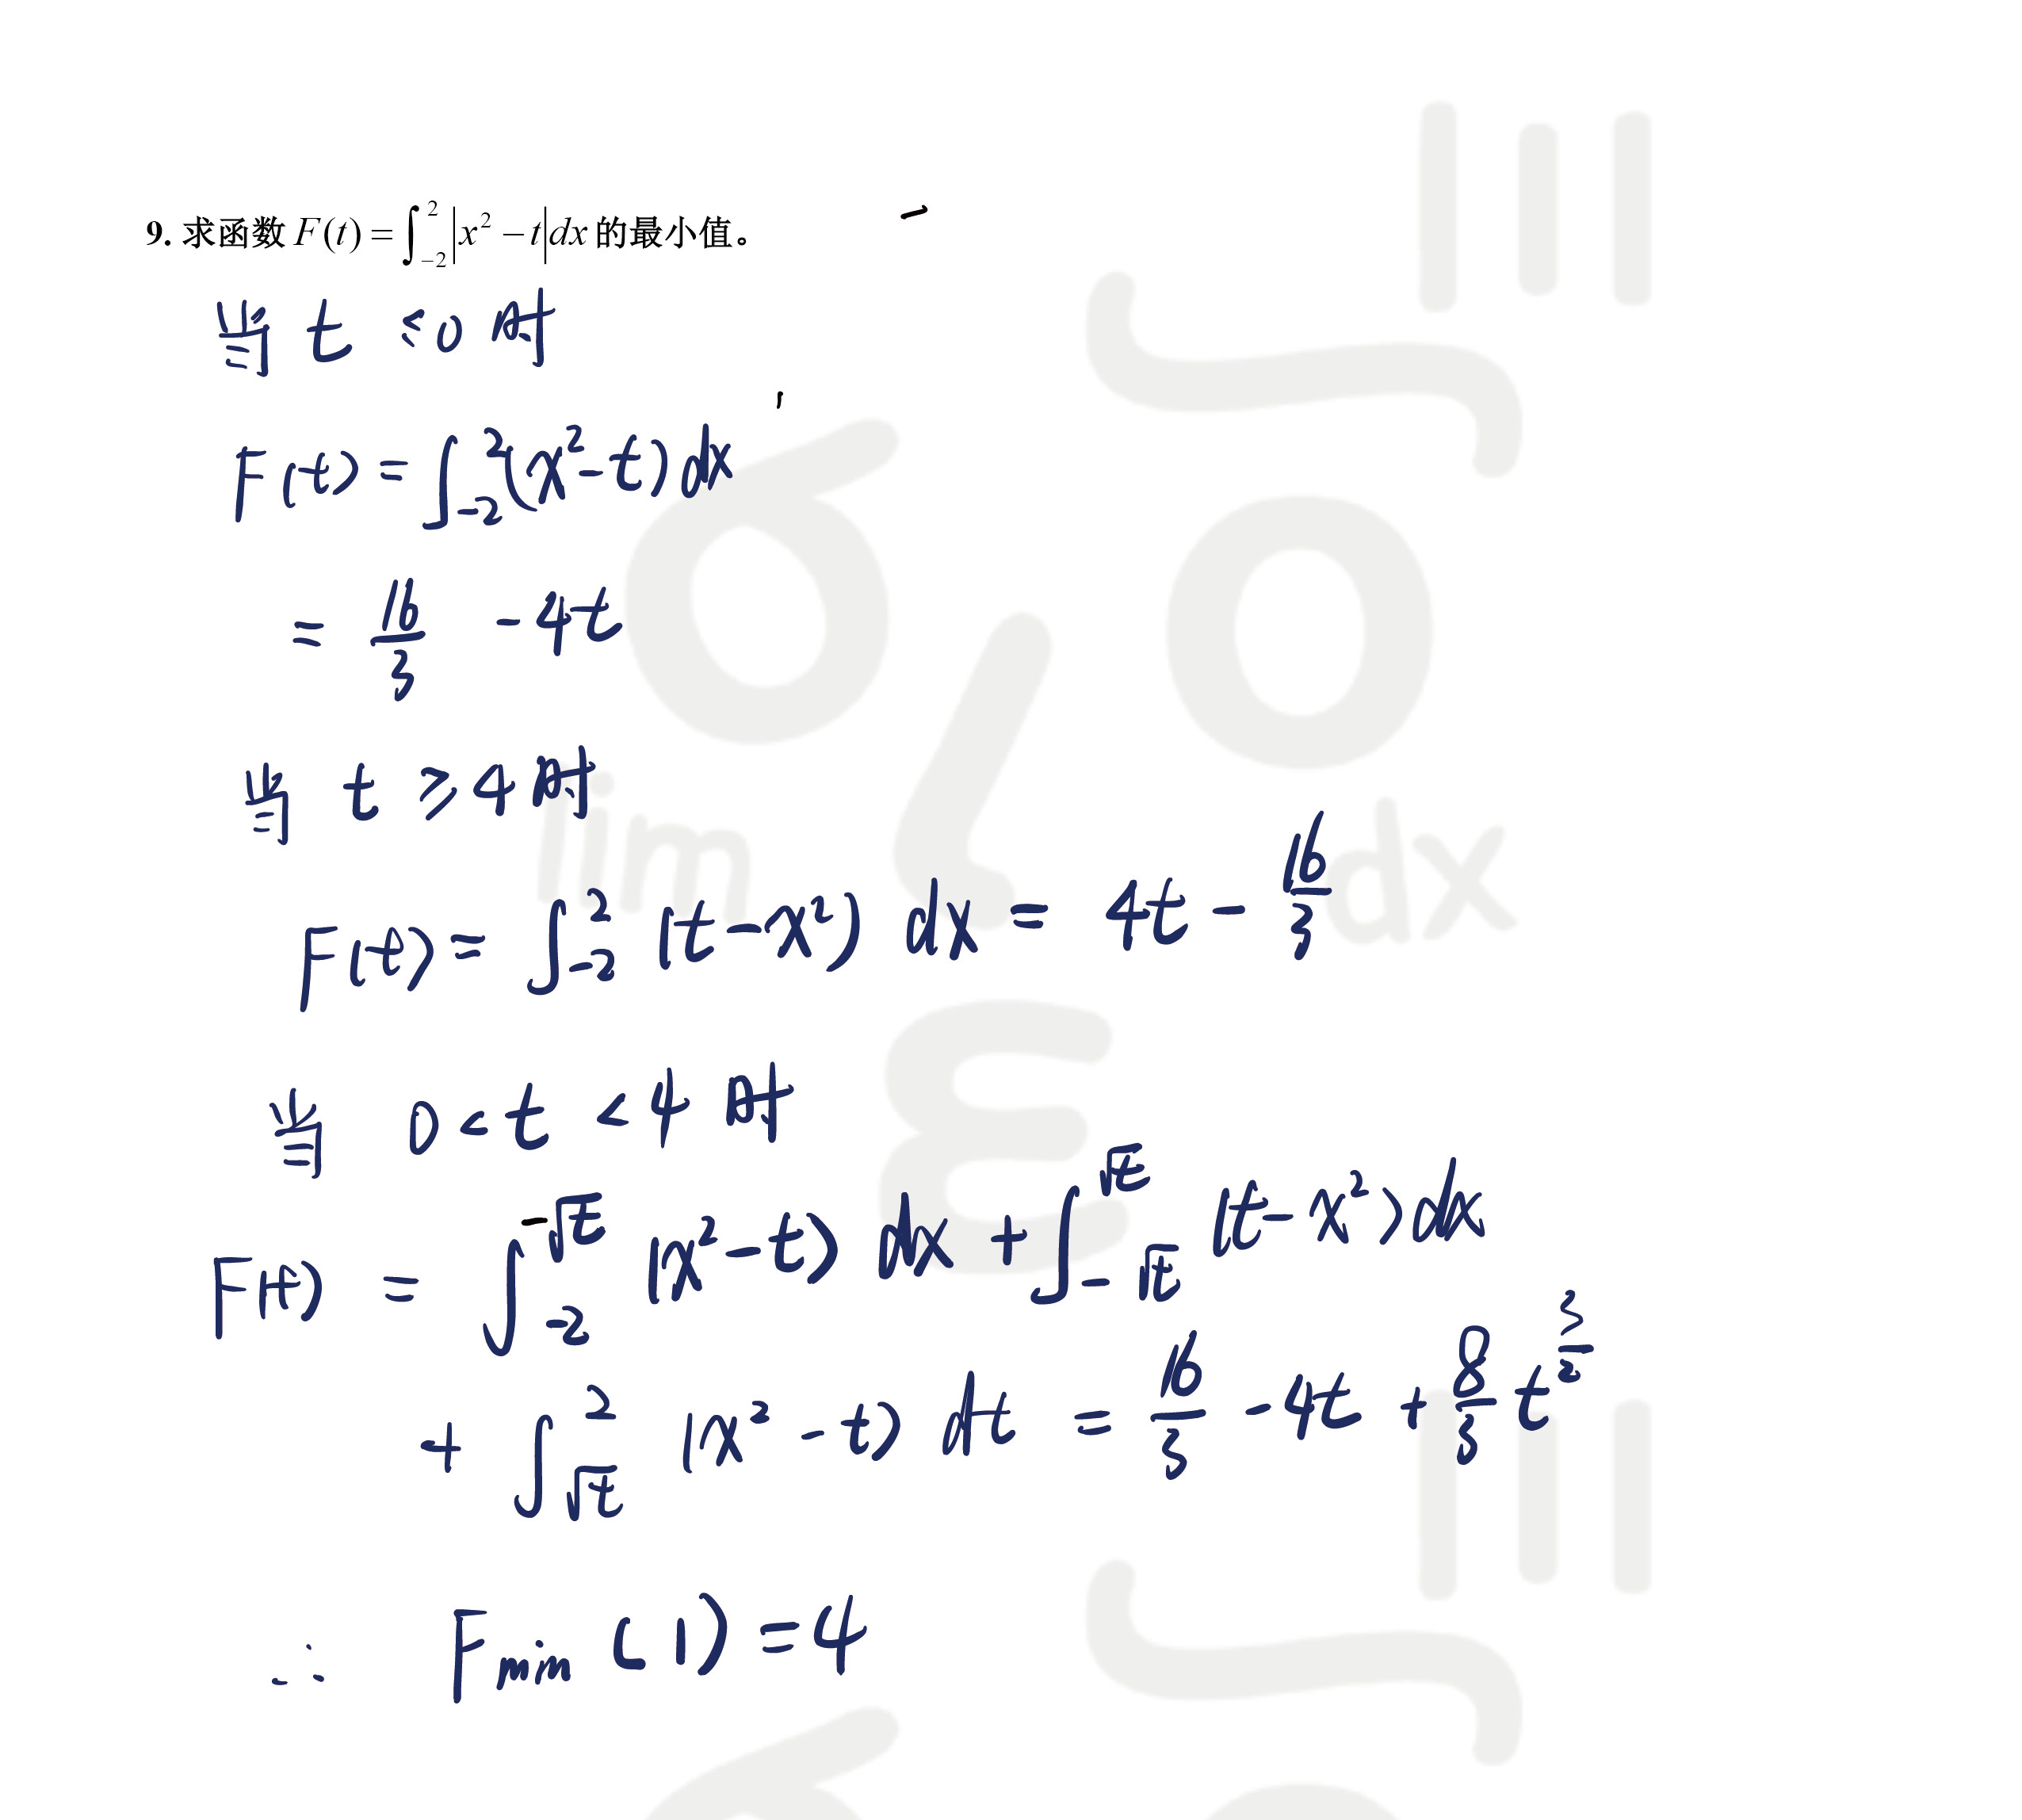 9. 求函数 F(t) = ∫_{-2}^{2} |x² - t| dx 的最小值。
当 t ≤ 0 时
F(t) = ∫_{-2}^{2} (x² - t) dx
= 16/3 - 4t
当 t ≥ 4 时
F(t) = ∫_{-2}^{2} (t - x²) dx = 4t - 16/3
当 0 < t < 4 时
F(t) = ∫_{-2}^{-√t} (x² - t) dx + ∫_{-√t}^{√t} (t - x²) dx
+ ∫_{√t}^{2} (x² - t) dt = 16/3 - 4t + 8/3 t^{3/2}
∴ F_{min} (1) = 4
lim
dx